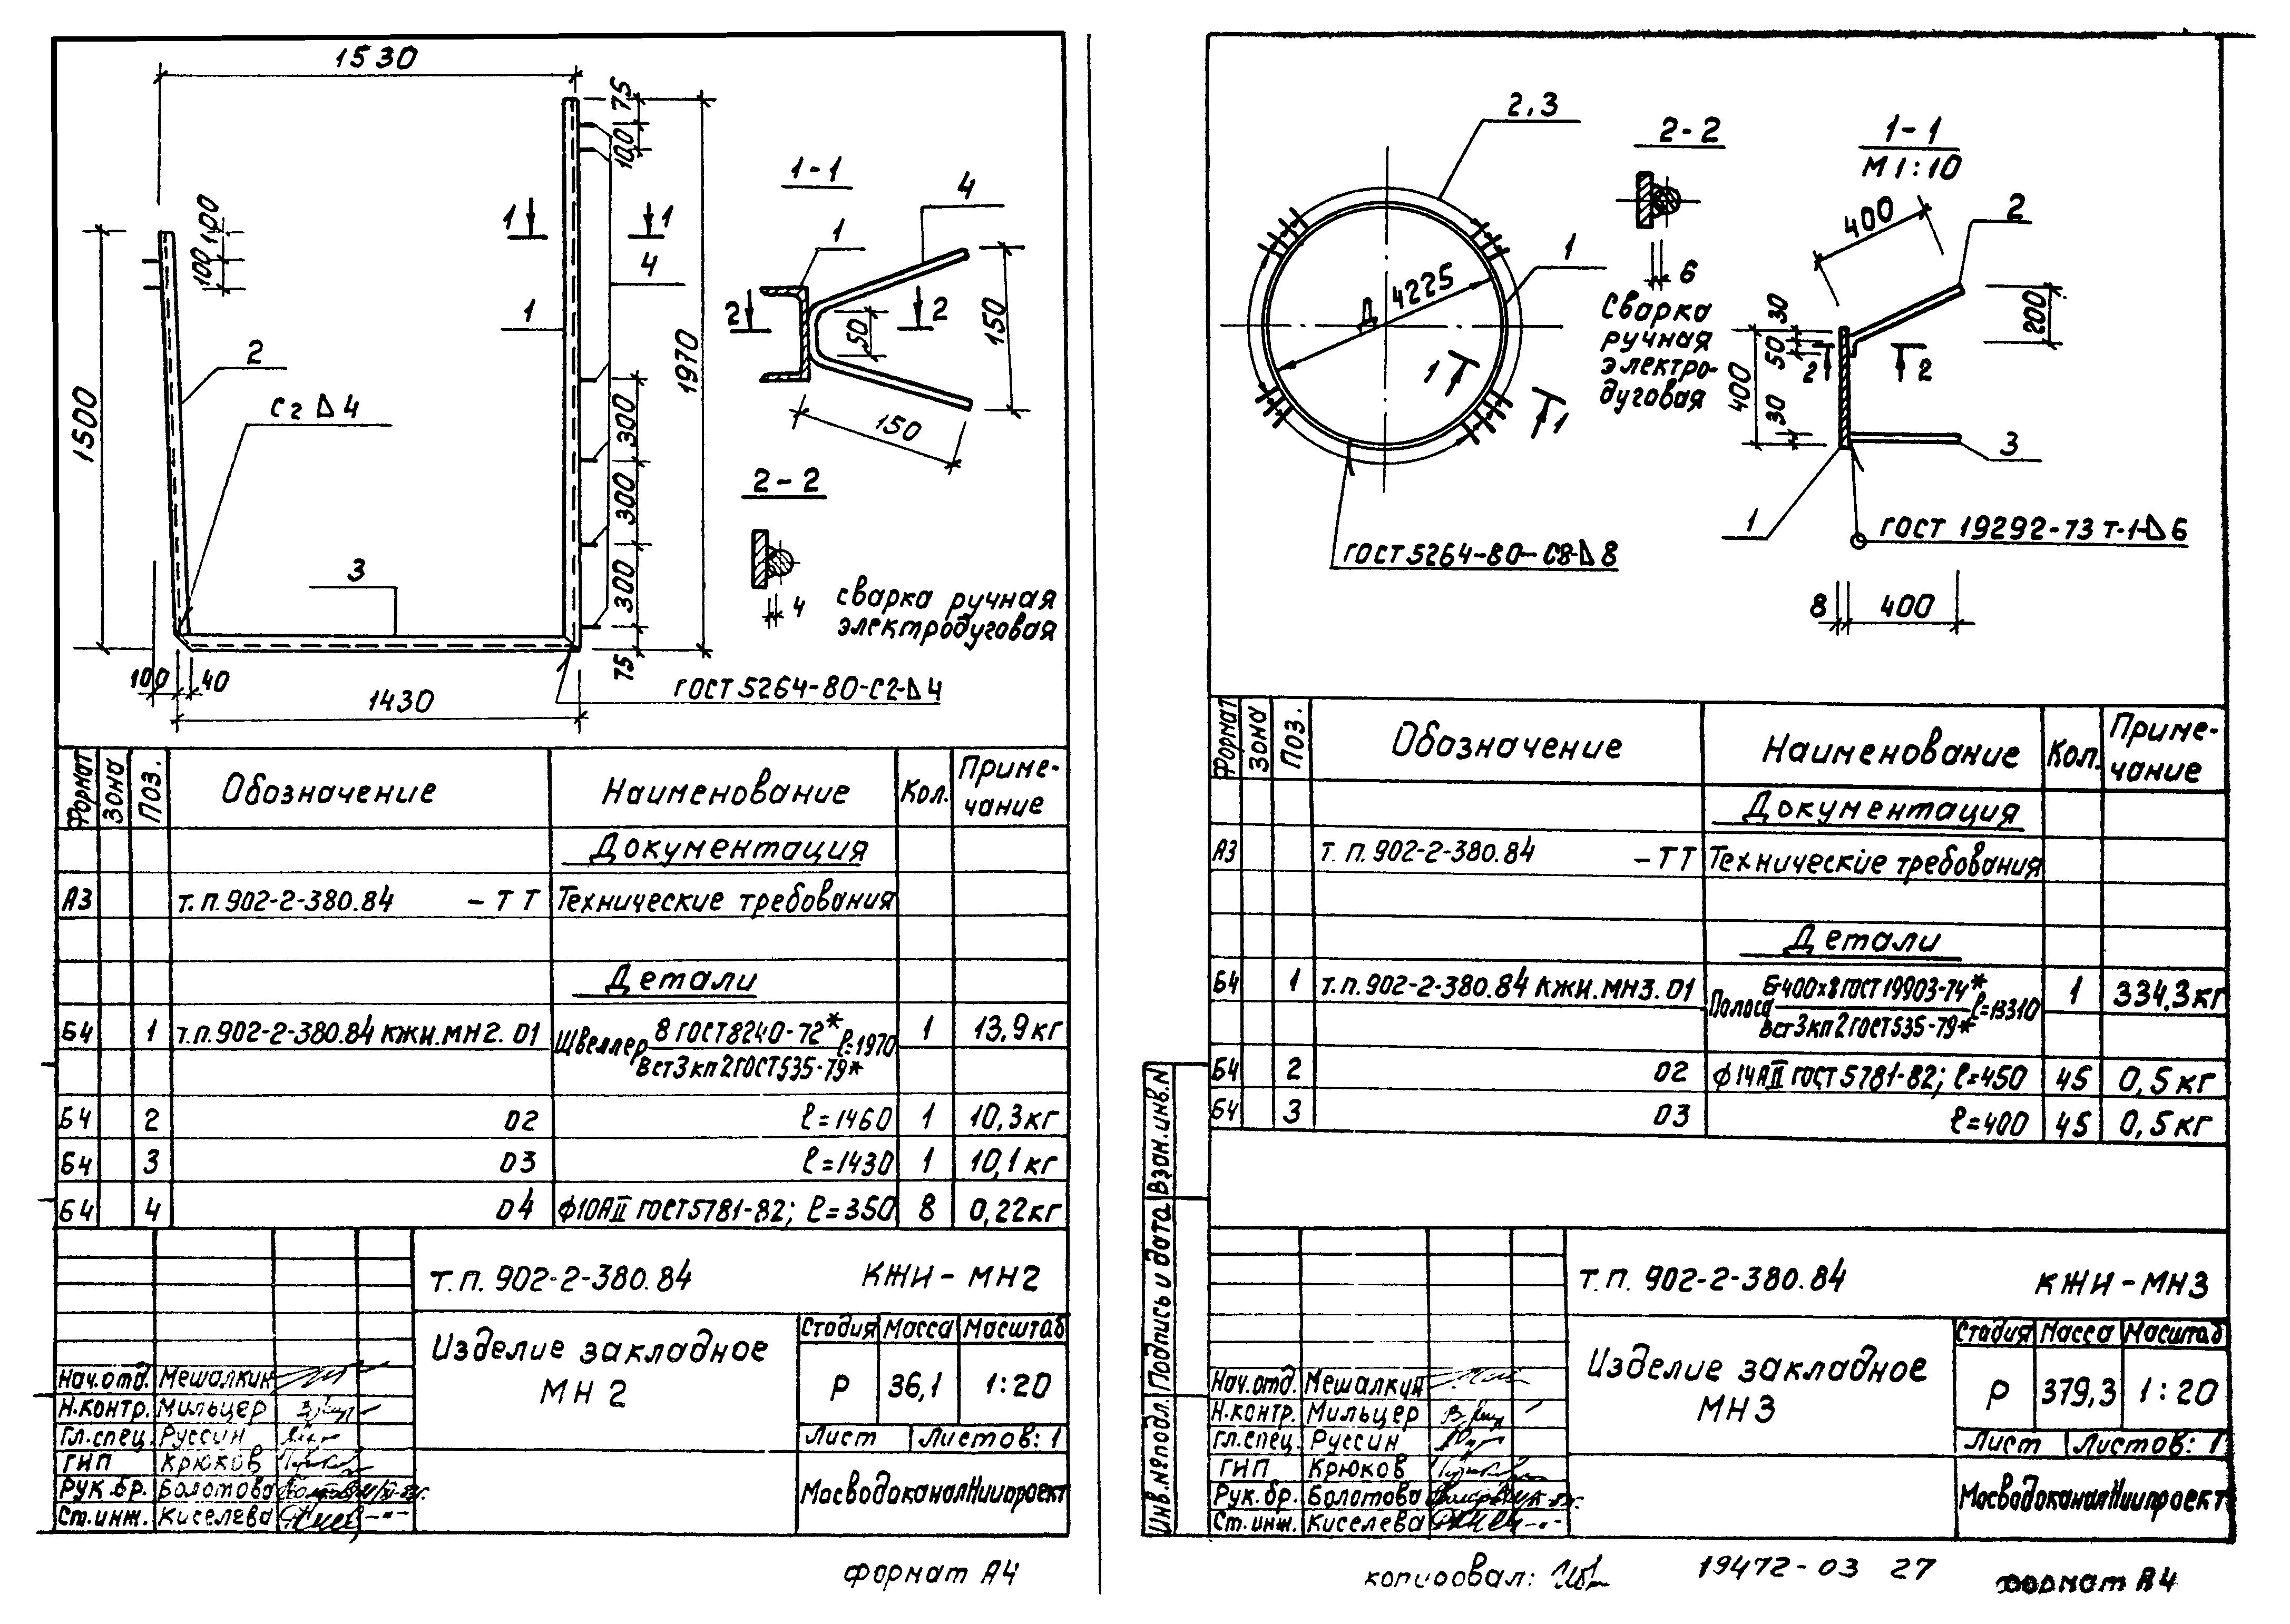 1530
75
100
1970
300
300
300
75
100
100
1500
1
1
4
1
2
3
С2 Δ 4
100
40
1430
ГОСТ 5264-80-С2-Δ4
1-1
4
1
2
2
50
150
150
2-2
4
сварка ручная
электродуговая
Формат
Зона
Поз.
Обозначение
Наименование
Кол.
Приме-
чание
Документация
А3 т.п.902-2-380.84 -ТТ Технические требования
Детали
Б4 1 т.п.902-2-380.84 КЖИ.МН2.01 Швеллер 8 ГОСТ 8240-72* ℓ=1970 1 13,9кг
Вст3кп2 ГОСТ 535-79*
Б4 2 02 ℓ=1460 1 10,3кг
Б4 3 03 ℓ=1430 1 10,1кг
Б4 4 04 ф10АII ГОСТ 5781-82; ℓ=350 8 0,22кг
т.п. 902-2-380.84 КЖИ-МН2
Изделие закладное
МН 2
Стадия Масса Масштаб
Р 36,1 1:20
Лист Листов: 1
МосводоканалНиипроект
Нач.отд. Мешалкин
Н.контр. Мильцер
Гл.спец. Руссин
ГИП Крюков
Рук.бр. Болотова
Ст.инж. Киселева
формат А4
2,3
1
Д 4225
1
1
ГОСТ 5264-80-С8-Δ8
2-2
6
Сварка
ручная
электро-
дуговая
1-1
М 1:10
400
2
200
30
50
400
30
2
2
3
1
ГОСТ 19292-73 Т-1-Δ6
8
400
Формат
Зона
Поз.
Обозначение
Наименование
Кол.
Приме-
чание
Документация
А3 т.п.902-2-380.84 -ТТ Технические требования
Детали
Б4 1 т.п.902-2-380.84 КЖИ.МН3.01 Полоса Б-400х8 ГОСТ 19903-74* ℓ=13310 1 334,3кг
Вст3кп2 ГОСТ 535-79*
Б4 2 02 ф14АII ГОСТ 5781-82; ℓ=450 45 0,5кг
Б4 3 03 ℓ=400 45 0,5кг
Взам.инв.N
Подпись и дата
Инв.№подл.
т.п. 902-2-380.84 КЖИ-МН3
Изделие закладное
МН3
Стадия Масса Масштаб
Р 379,3 1:20
Лист Листов: 1
МосводоканалНиипроект
Нач.отд. Мешалкин
Н.контр. Мильцер
Гл.спец. Руссин
ГИП Крюков
Рук.бр. Болотова
Ст.инж. Киселева
копировал:
19472-03 27
формат А4